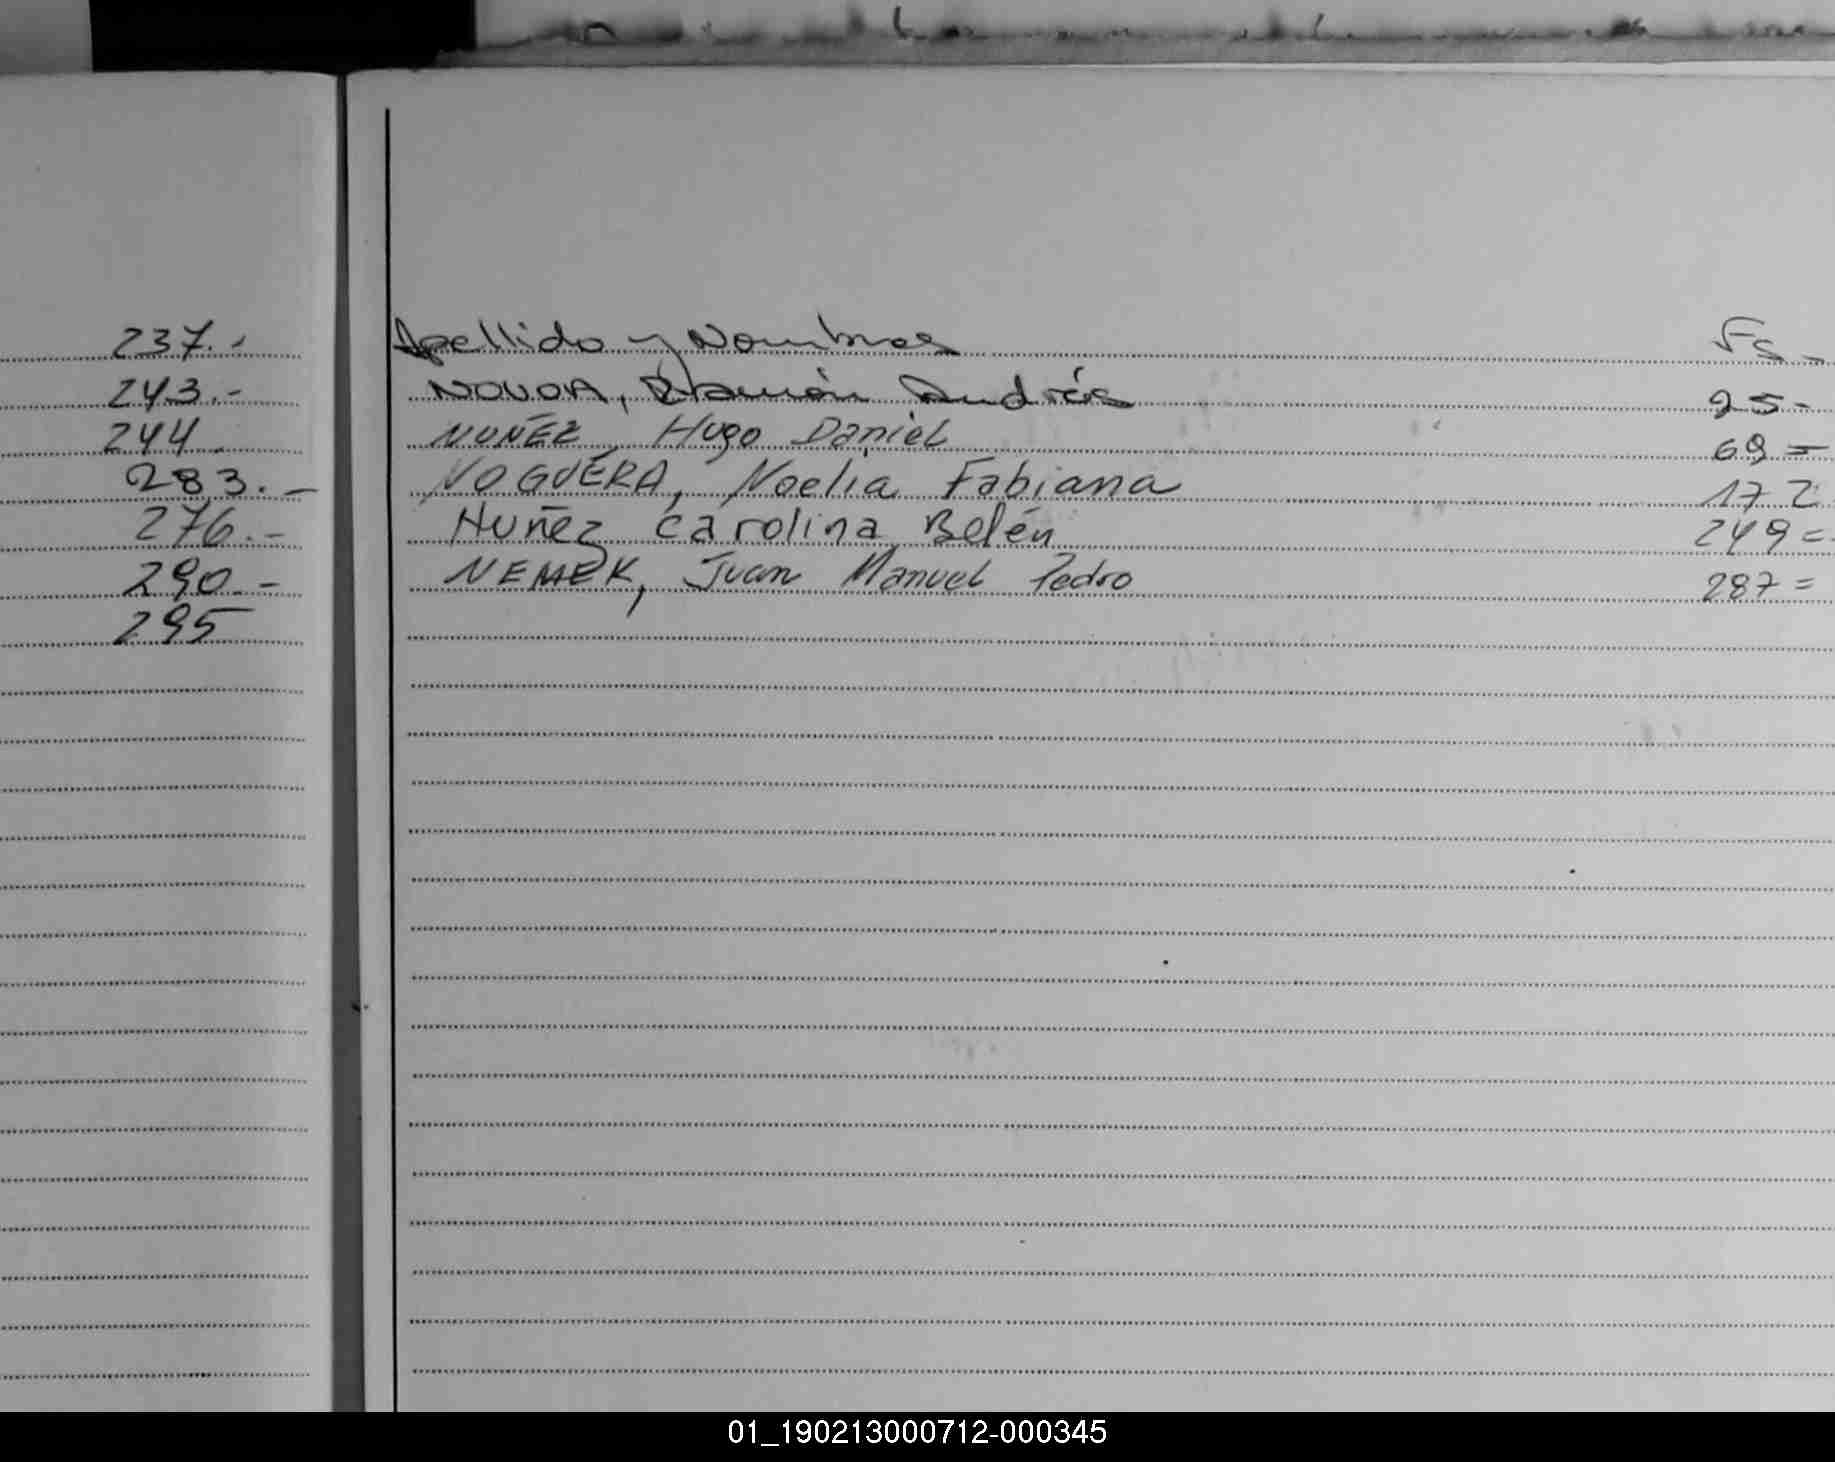 237.-
243.-
244
283.-
276.-
290.-
295
Apellido y Nombres Fs.-
NOVOA, Ramón Andrés 25-
NUÑEZ, Hugo Daniel 69=
NOGUERA, Noelia Fabiana 172
Nuñez Carolina Belén 249=
NEMEK, Juan Manuel Pedro 287=
01_190213000712-000345